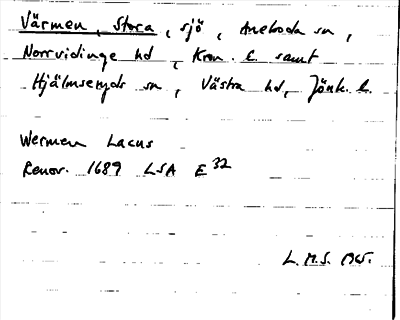 Värmen, Stora, sjö, Aneboda sn,
Norrvidinge hd, Kron. l. samt
Hjälmseryds sn, Västra hd, Jönk. l.
Wermen Lacus
Renov. 1689 LSA E 32
L.M.S. 1965.